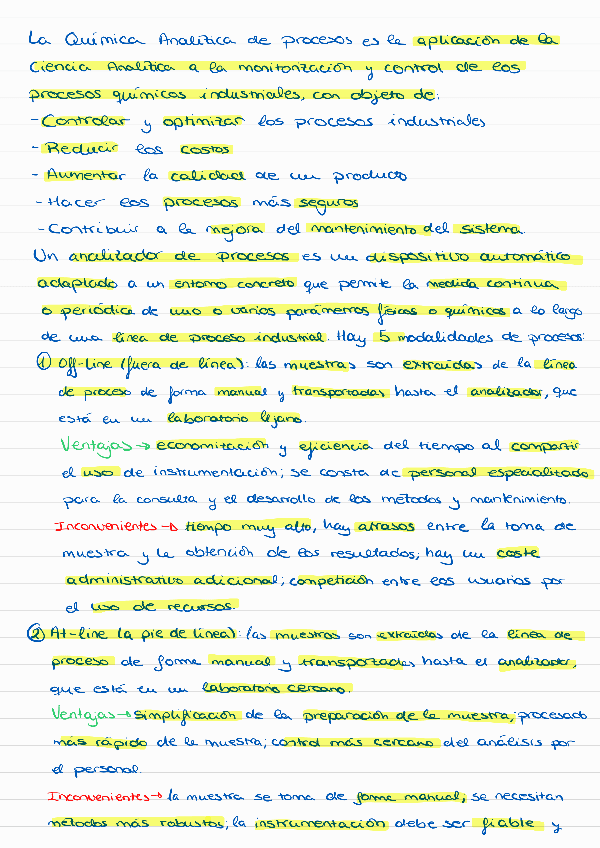 La Química Analítica de procesos es la aplicación de la
Ciencia Analítica a la monitorización y control de los
procesos químicos industriales, con objeto de:
- Controlar y optimizar los procesos industriales
- Reducir los costos
- Aumentar la calidad de un producto
- Hacer los procesos más seguros
- Contribuir a la mejora del mantenimiento del sistema.
Un analizador de procesos es un dispositivo automático
adaptado a un entorno concreto que permite la medida continua
o periódica de uno o varios parámetros físicos o químicos a lo largo
de una línea de proceso industrial. Hay 5 modalidades de procesos:
① Off-line (fuera de línea): las muestras son extraídas de la línea
de proceso de forma manual y transportadas hasta el analizador, que
está en un laboratorio lejano.
Ventajas → economización y eficiencia del tiempo al compartir
el uso de instrumentación; se consta de personal especializado
para la consulta y el desarrollo de los métodos y mantenimiento.
Inconvenientes → tiempo muy alto, hay atrasos entre la toma de
muestra y la obtención de los resultados; hay un coste
administrativo adicional; competición entre los usuarios por
el uso de recursos.
② At-line (a pie de línea): las muestras son extraídas de la línea de
proceso de forma manual y transportadas hasta el analizador,
que está en un laboratorio cercano.
Ventajas → simplificación de la preparación de la muestra; procesado
más rápido de la muestra; control más cercano del análisis por
el personal.
Inconvenientes → la muestra se toma de forma manual; se necesitan
métodos más robustos; la instrumentación debe ser fiable y